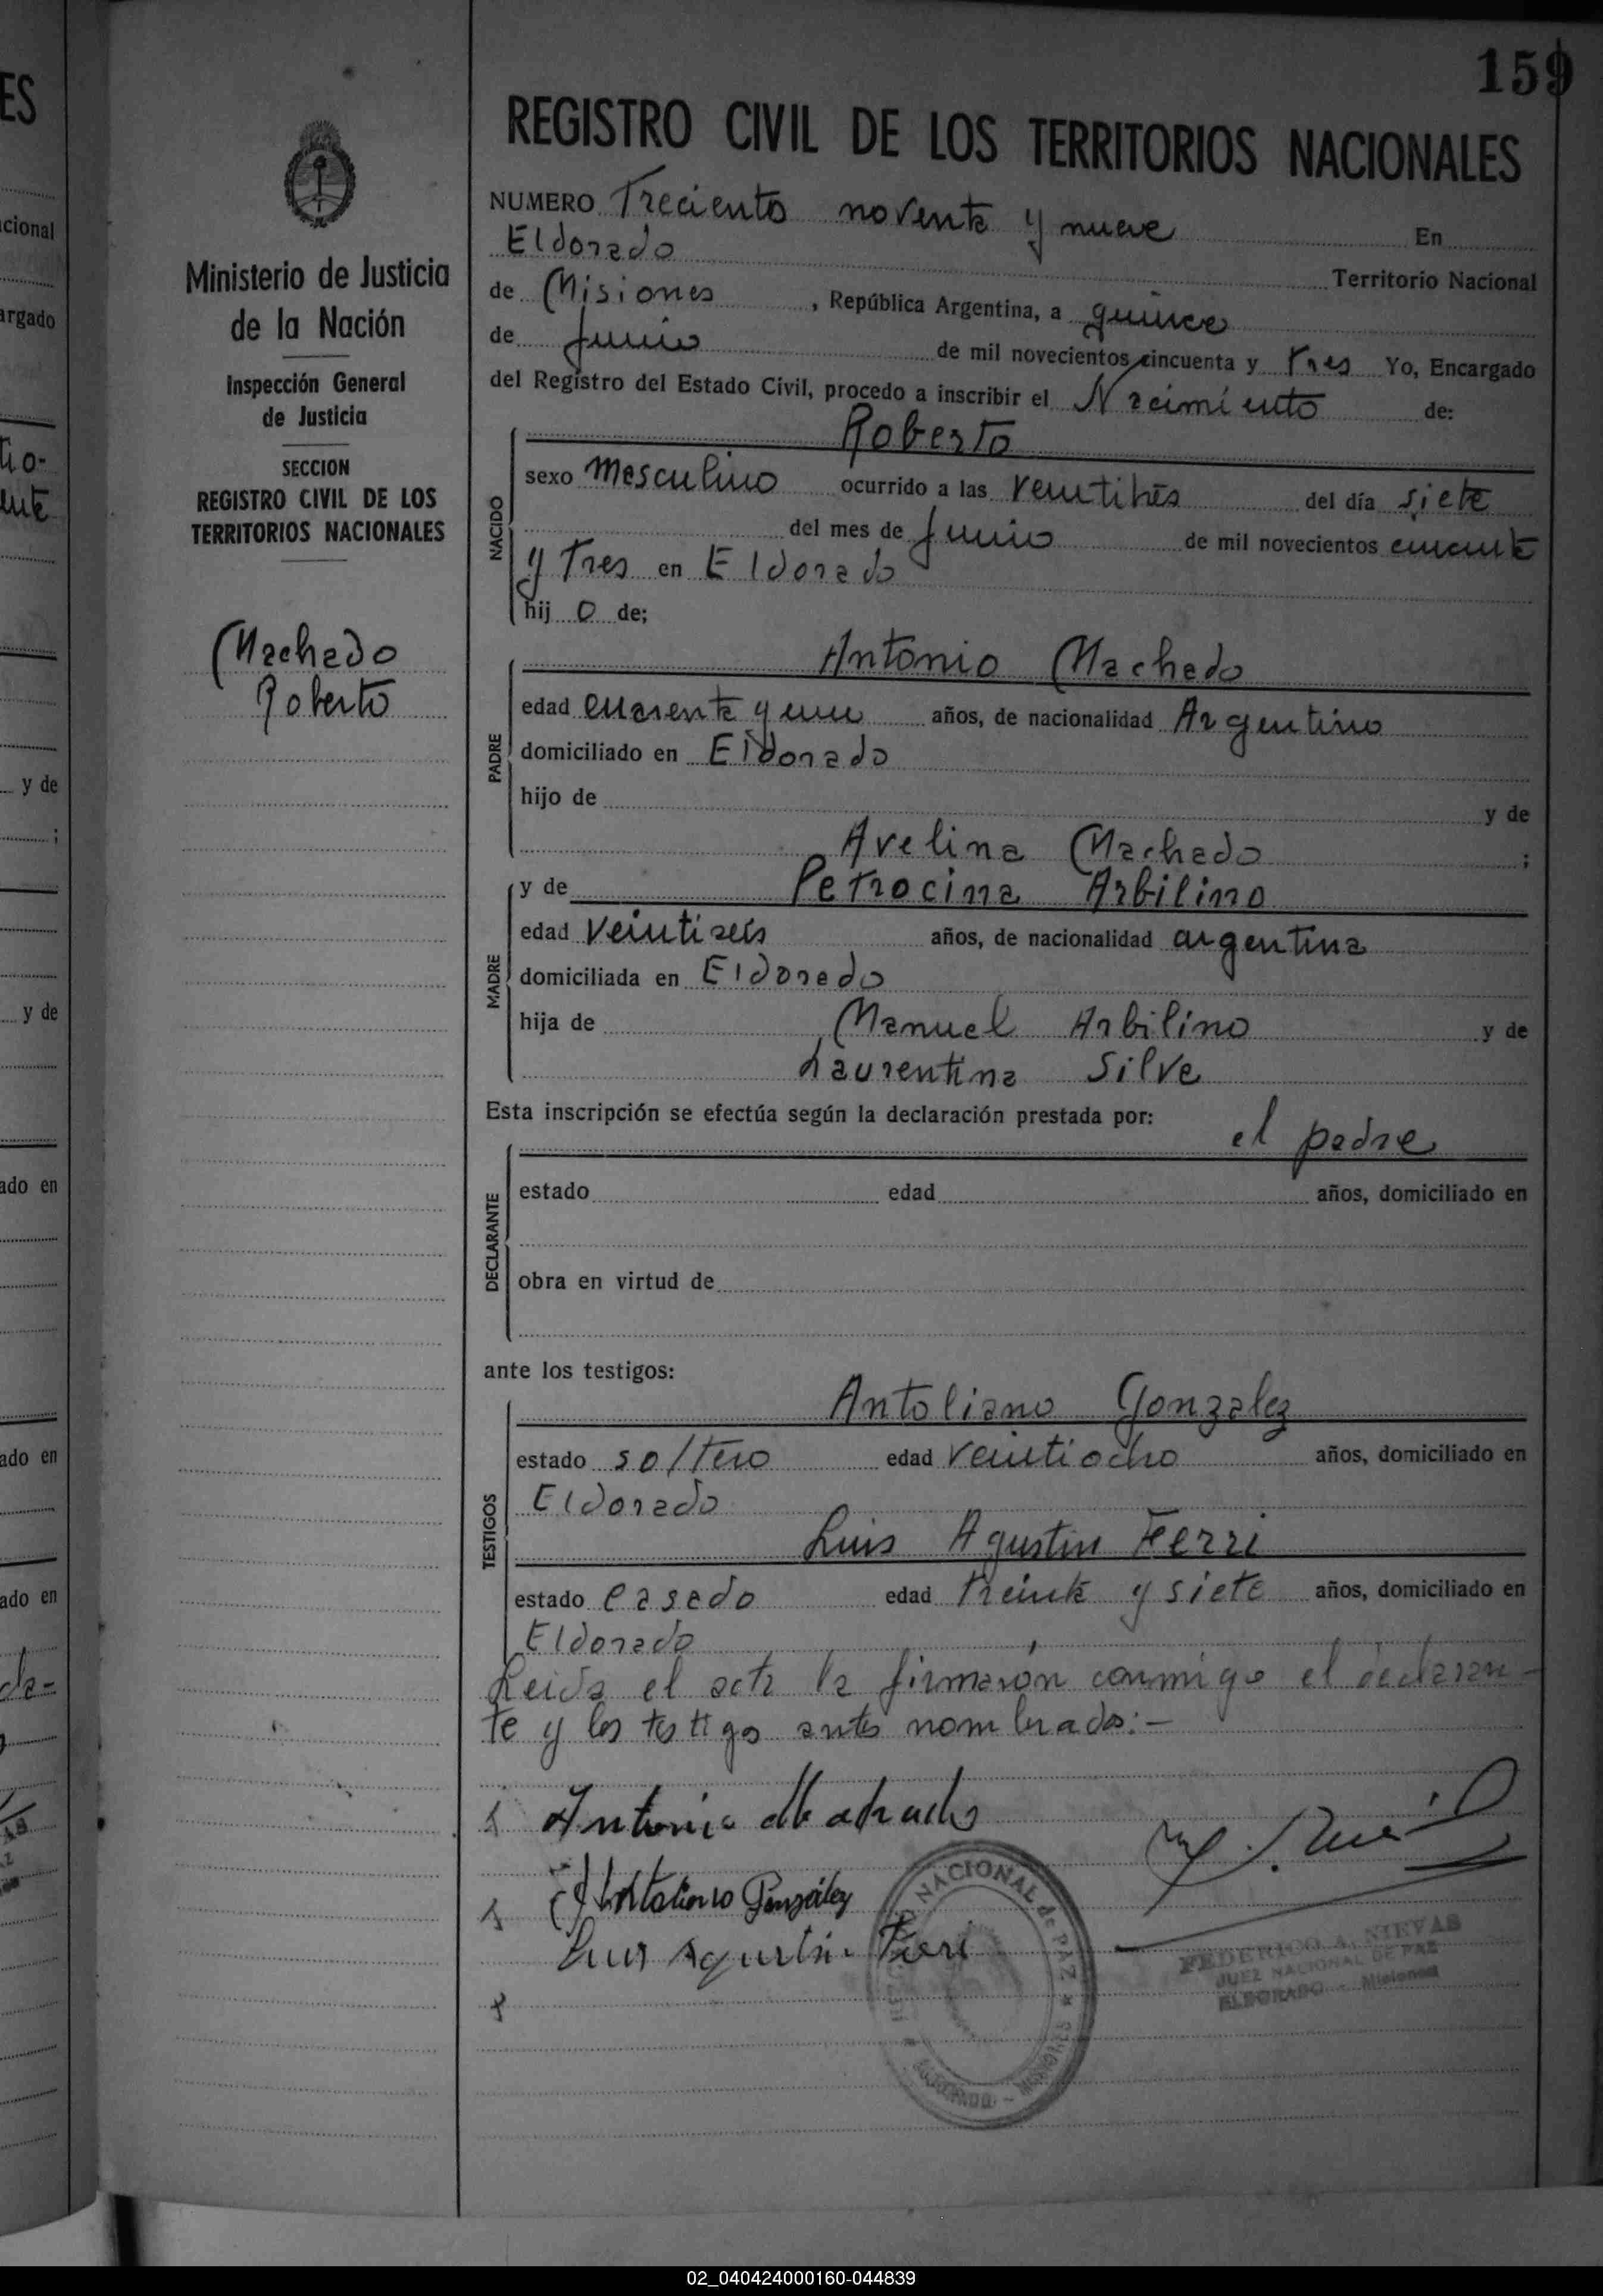 159
REGISTRO CIVIL DE LOS TERRITORIOS NACIONALES
NUMERO Treciento noventa y nueve En
Eldorado Territorio Nacional
de Misiones, República Argentina, a quince
de Junio de mil novecientos cincuenta y tres Yo, Encargado
del Registro del Estado Civil, procedo a inscribir el Nacimiento de:
Roberto
NACIDO
sexo masculino ocurrido a las veintitrés del día siete
del mes de Junio de mil novecientos cincuenta
y Tres en Eldorado
hij o de;
PADRE
Antonio Machado
edad cuarenta y un años, de nacionalidad Argentino
domiciliado en Eldorado
hijo de y de
Avelina Machado ;
MADRE
y de Petrocina Arbilino
edad veintiseis años, de nacionalidad argentina
domiciliada en Eldorado
hija de Manuel Arbilino y de
Laurentina Silva
Esta inscripción se efectúa según la declaración prestada por:
el padre
DECLARANTE
estado edad años, domiciliado en
obra en virtud de
ante los testigos:
TESTIGOS
Antoliano Gonzalez
estado soltero edad veintiocho años, domiciliado en
Eldorado
Luis Agustin Ferri
estado casado edad treinta y siete años, domiciliado en
Eldorado
Leida el acta la firmarón conmigo el declaran-
te y los testigos antes nombrados:-
Antonio Machado
Antoliano González
Luis Agustin Ferri
NACIONAL de PAZ * MISIONES
ELDORADO
FEDERICO A. NIEVAS
JUEZ NACIONAL DE PAZ
ELDORADO - Misiones
Ministerio de Justicia
de la Nación
Inspección General
de Justicia
SECCION
REGISTRO CIVIL DE LOS
TERRITORIOS NACIONALES
Machado
Roberto
ES
cional
argado
y de
;
y de
ado en
ado en
ado en
02_040424000160-044839